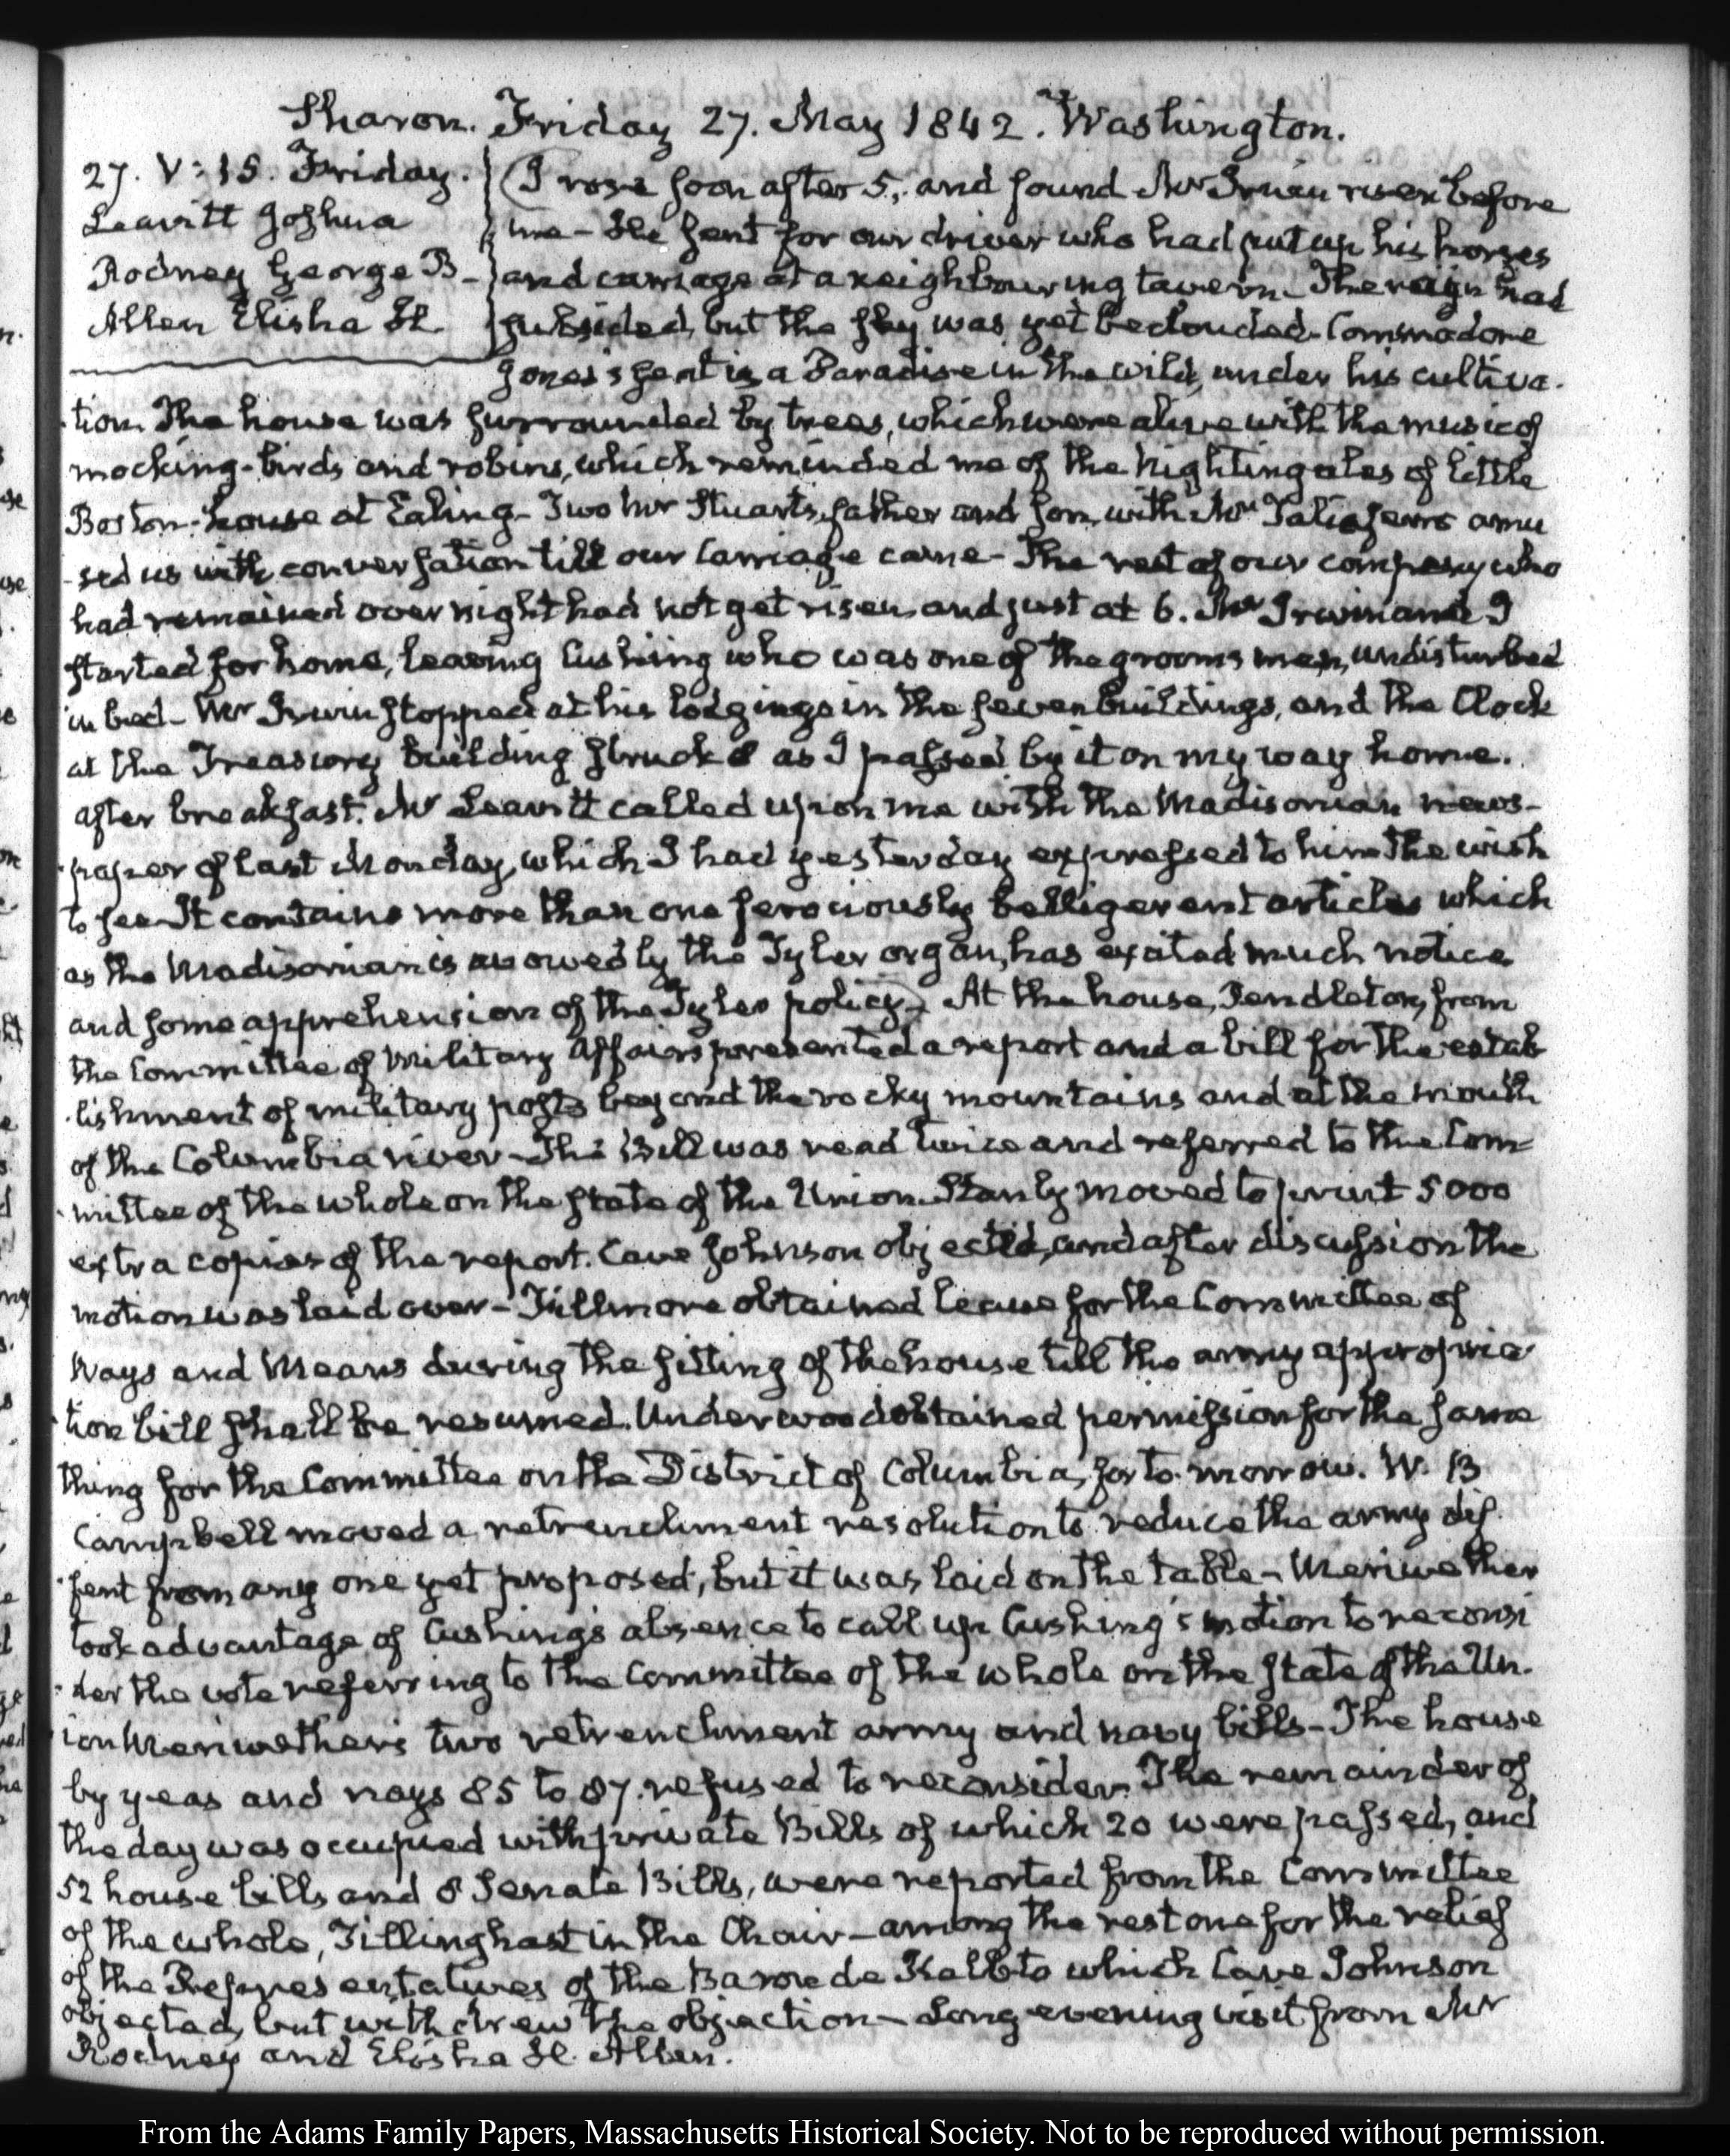 Sharon. Friday 27. May 1842. Washington.
27. V:15. Friday.
Leavitt Joshua
Rodney George B.
Allen Elisha H.
I rose soon after 5, and found Mr Irwin risen before
me - He sent for our driver who had put up his horses
and carriage at a neighbouring tavern - The rain had
subsided, but the sky was yet beclouded. Commodore
Jones's seat is a Paradise in the wild, under his cultiva-
tion. The house was surrounded by trees, which were alive with the music of
mocking-birds and robins, which reminded me of the Nightingales of little
Boston-house at Ealing - Two Mr Stuarts, father and son, with Mrs Taliaferro amu
-sed us with conversation till our Carriage came - The rest of our company who
had remained over night had not yet risen and just at 6. Mr Irwin and I
started for home, leaving Cushing who was one of the grooms men, undisturbed
in bed - Mr Irwin stopped at his lodgings in the seven buildings, and the Clock
at the Treasury building struck 8 as I passed by it on my way home.
After breakfast. Mr Leavitt called upon me with the Madisonian news-
-paper of last Monday, which I had yesterday expressed to him the wish
to see. It contains more than one ferociously belligerent articles which
as the Madisonian is avowedly the Tyler organ, has excited much notice
and some apprehension of the Tyler policy. At the house, Pendleton, from
the Committee of Military Affairs presented a report and a bill for the estab
-lishment of military posts beyond the rocky mountains and at the mouth
of the Columbia river - The Bill was read twice and referred to the Com-
-mittee of the whole on the state of the Union. Stanly moved to print 5000
extra copies of the report. Cave Johnson objected, and after discussion the
motion was laid over - Fillmore obtained leave for the Committee of
Ways and Means during the sitting of the house till the army appropria
-tion bill shall be resumed. Underwood obtained permission for the same
thing for the Committee on the District of Columbia, for to-morrow. W. B
Campbell moved a retrenchment resolution to reduce the army dif-
-fent from any one yet proposed, but it was laid on the table - Meriwether
took advantage of Cushing's absence to call up Cushing's motion to reconsi
-der the vote referring to the Committee of the whole on the state of the Un-
ion Meriwether's two retrenchment army and navy bills - The house
by yeas and nays 85 to 87. refused to reconsider. The remainder of
the day was occupied with private Bills of which 20 were passed, and
52 house bills and 8 Senate Bills, were reported from the Committee
of the whole, Tillinghast in the Chair - among the rest one for the relief
of the Representatives of the Baron de Kalb to which Cave Johnson
objected, but withdrew the objection - Long evening visit from Mr
Rodney and Elisha H. Allen.
From the Adams Family Papers, Massachusetts Historical Society. Not to be reproduced without permission.